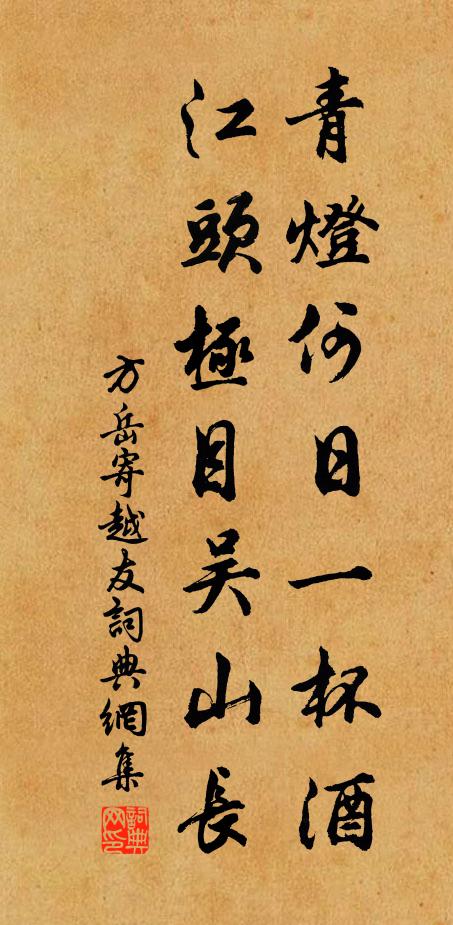 青燈何日一杯酒
江頭極目吴山長
方岳寄越友詞典網集
詞典网印